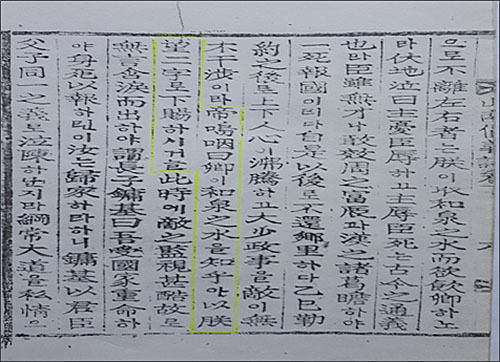 으로不離左右者는朕이取和泉之水而欲飮卿하노
라伏地泣曰主憂臣辱하고主辱臣死는古今之通義
也라臣雖無才나敢效周之富辰과漢之諸葛瞻하야
一死報國이 自是以後로不還鄕里하다乙巳勒
約之後로上下人心이沸騰하고大少政事를敵이無
不干涉이라帝嗚咽曰卿이和泉之水를知乎아以朕
望二字로下賜하시 此時에敵之監視甚酷故로
無言含淚而出하야謂長子鏞基曰吾受國家重命하
야身死以報하 汝는歸家하라하니鏞基以君臣
父子同一之義로泣陳하 綱常大道을私情으